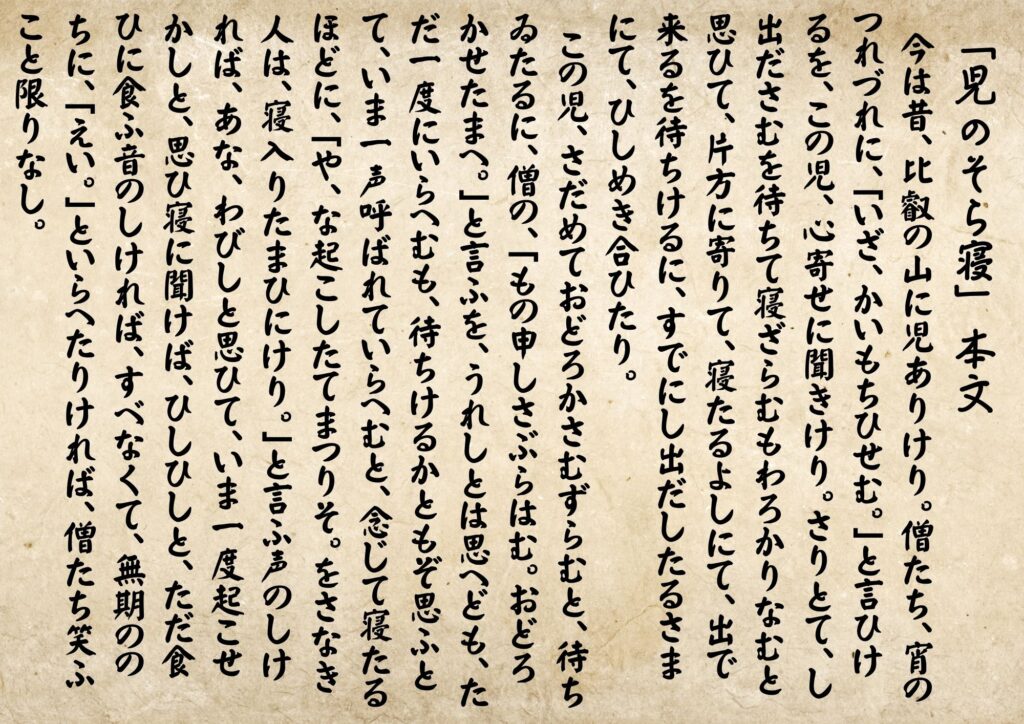 「児のそら寝」　本文
　今は昔、比叡の山に児ありけり。僧たち、宵の
つれづれに、「いざ、かいもちひせむ。」と言ひけ
るを、この児、心寄せに聞きけり。さりとて、し
出ださむを待ちて寝ざらむもわろかりなむと
思ひて、片方に寄りて、寝たるよしにて、出で
来るを待ちけるに、すでにし出だしたるさま
にて、ひしめき合ひたり。
　この児、さだめておどろかさむずらむと、待ち
ゐたるに、僧の、「もの申しさぶらはむ。おどろ
かせたまへ。」と言ふを、うれしとは思へども、た
だ一度にいらへむも、待ちけるかともぞ思ふと
て、いま一声呼ばれていらへむと、念じて寝たる
ほどに、「や、な起こしたてまつりそ。をさなき
人は、寝入りたまひにけり。」と言ふ声のしけ
れば、あな、わびしと思ひて、いま一度起こせ
かしと、思ひ寝に聞けば、ひしひしと、ただ食
ひに食ふ音のしければ、すべなくて、無期のの
ちに、「えい。」といらへたりければ、僧たち笑ふ
こと限りなし。